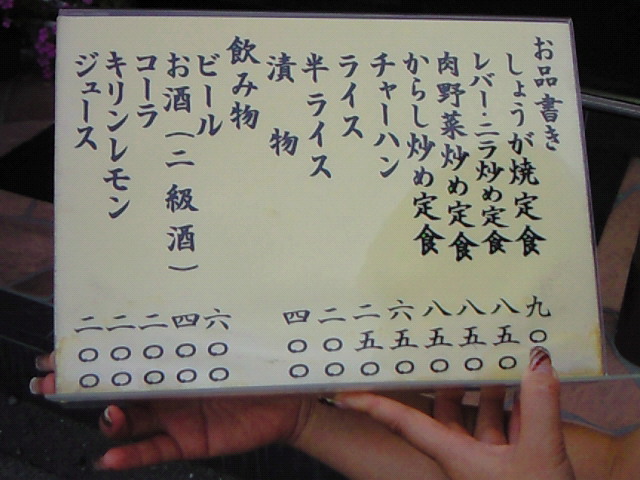 お品書き
しょうが焼定食 九〇
レバー・ニラ炒め定食 八五〇
肉野菜炒め定食 八五〇
からし炒め定食 八五〇
チャーハン 六五〇
ライス 二五〇
半ライス 二〇〇
漬物 四〇〇
飲み物
ビール 六〇〇
お酒（二級酒） 四〇〇
コーラ 二〇〇
キリンレモン 二〇〇
ジュース 二〇〇